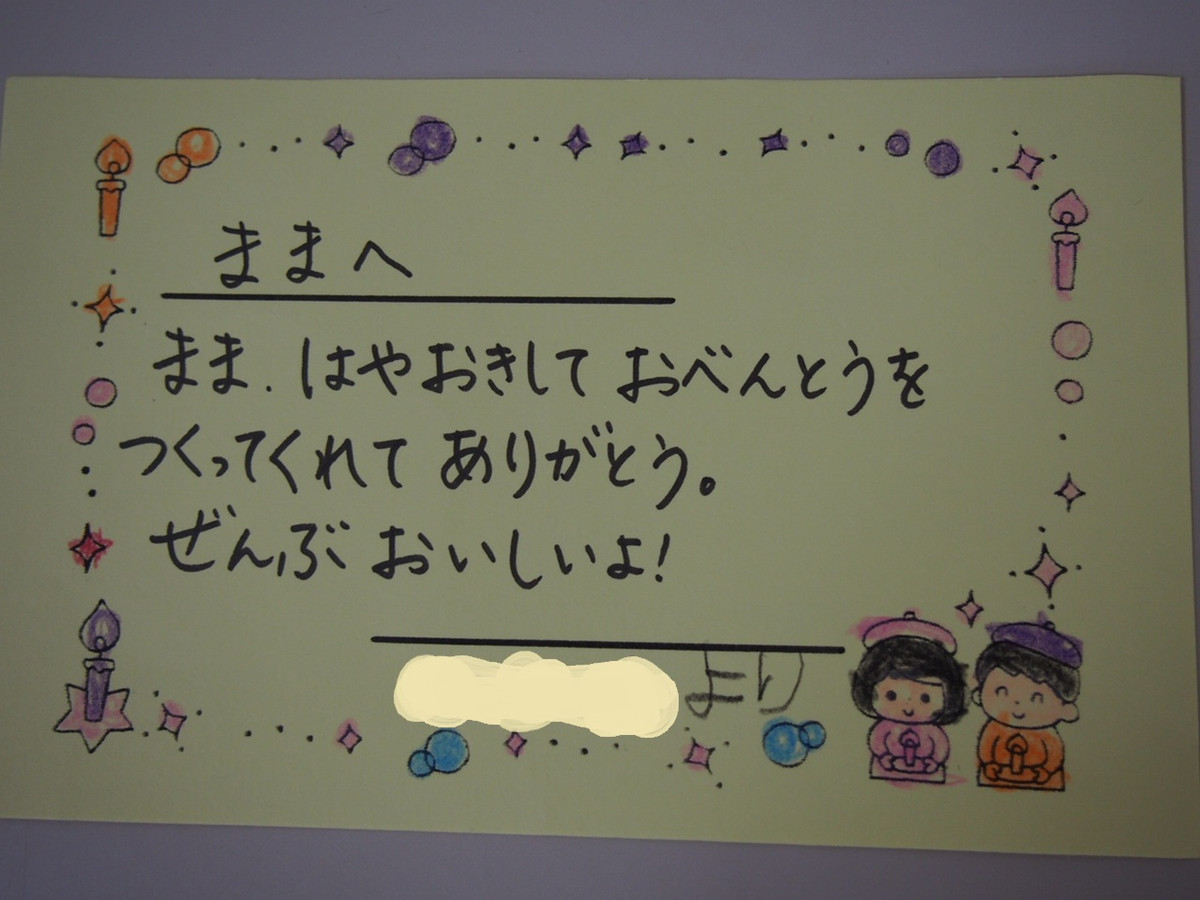 ままへ
まま、はやおきして おべんとうを
つくってくれて ありがとう。
ぜんぶ おいしいよ!
より